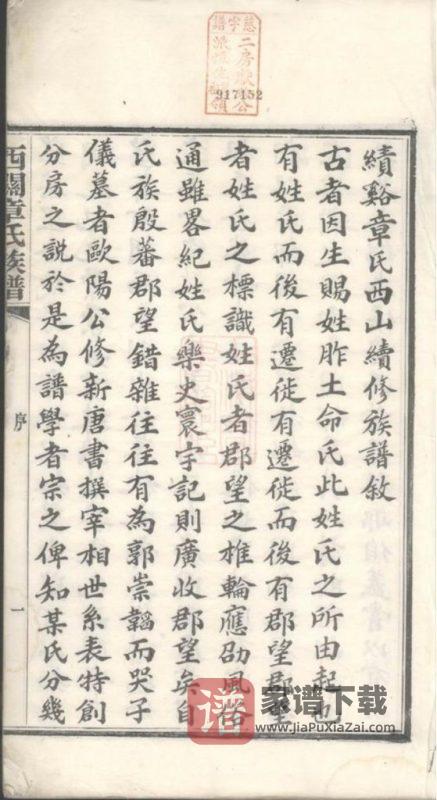 績谿章氏西山續修族譜敘
古者因生賜姓胙土命氏此姓氏之所由起也
有姓氏而後有遷徙有遷徙而後有郡望郡望
者姓氏之標識姓氏者郡望之椎輪應劭風俗
通雖畧紀姓氏樂史寰宇記則廣收郡望矣自
氏族殷蕃郡望錯雜往往有為郭崇韜而哭子
儀墓者歐陽公修新唐書撰宰相世系表特創
分房之説於是為譜學者宗之俾知某氏分幾
西關章氏族譜
序
一
917152
谱
家谱下载
www.JiaPuXiaZai.com